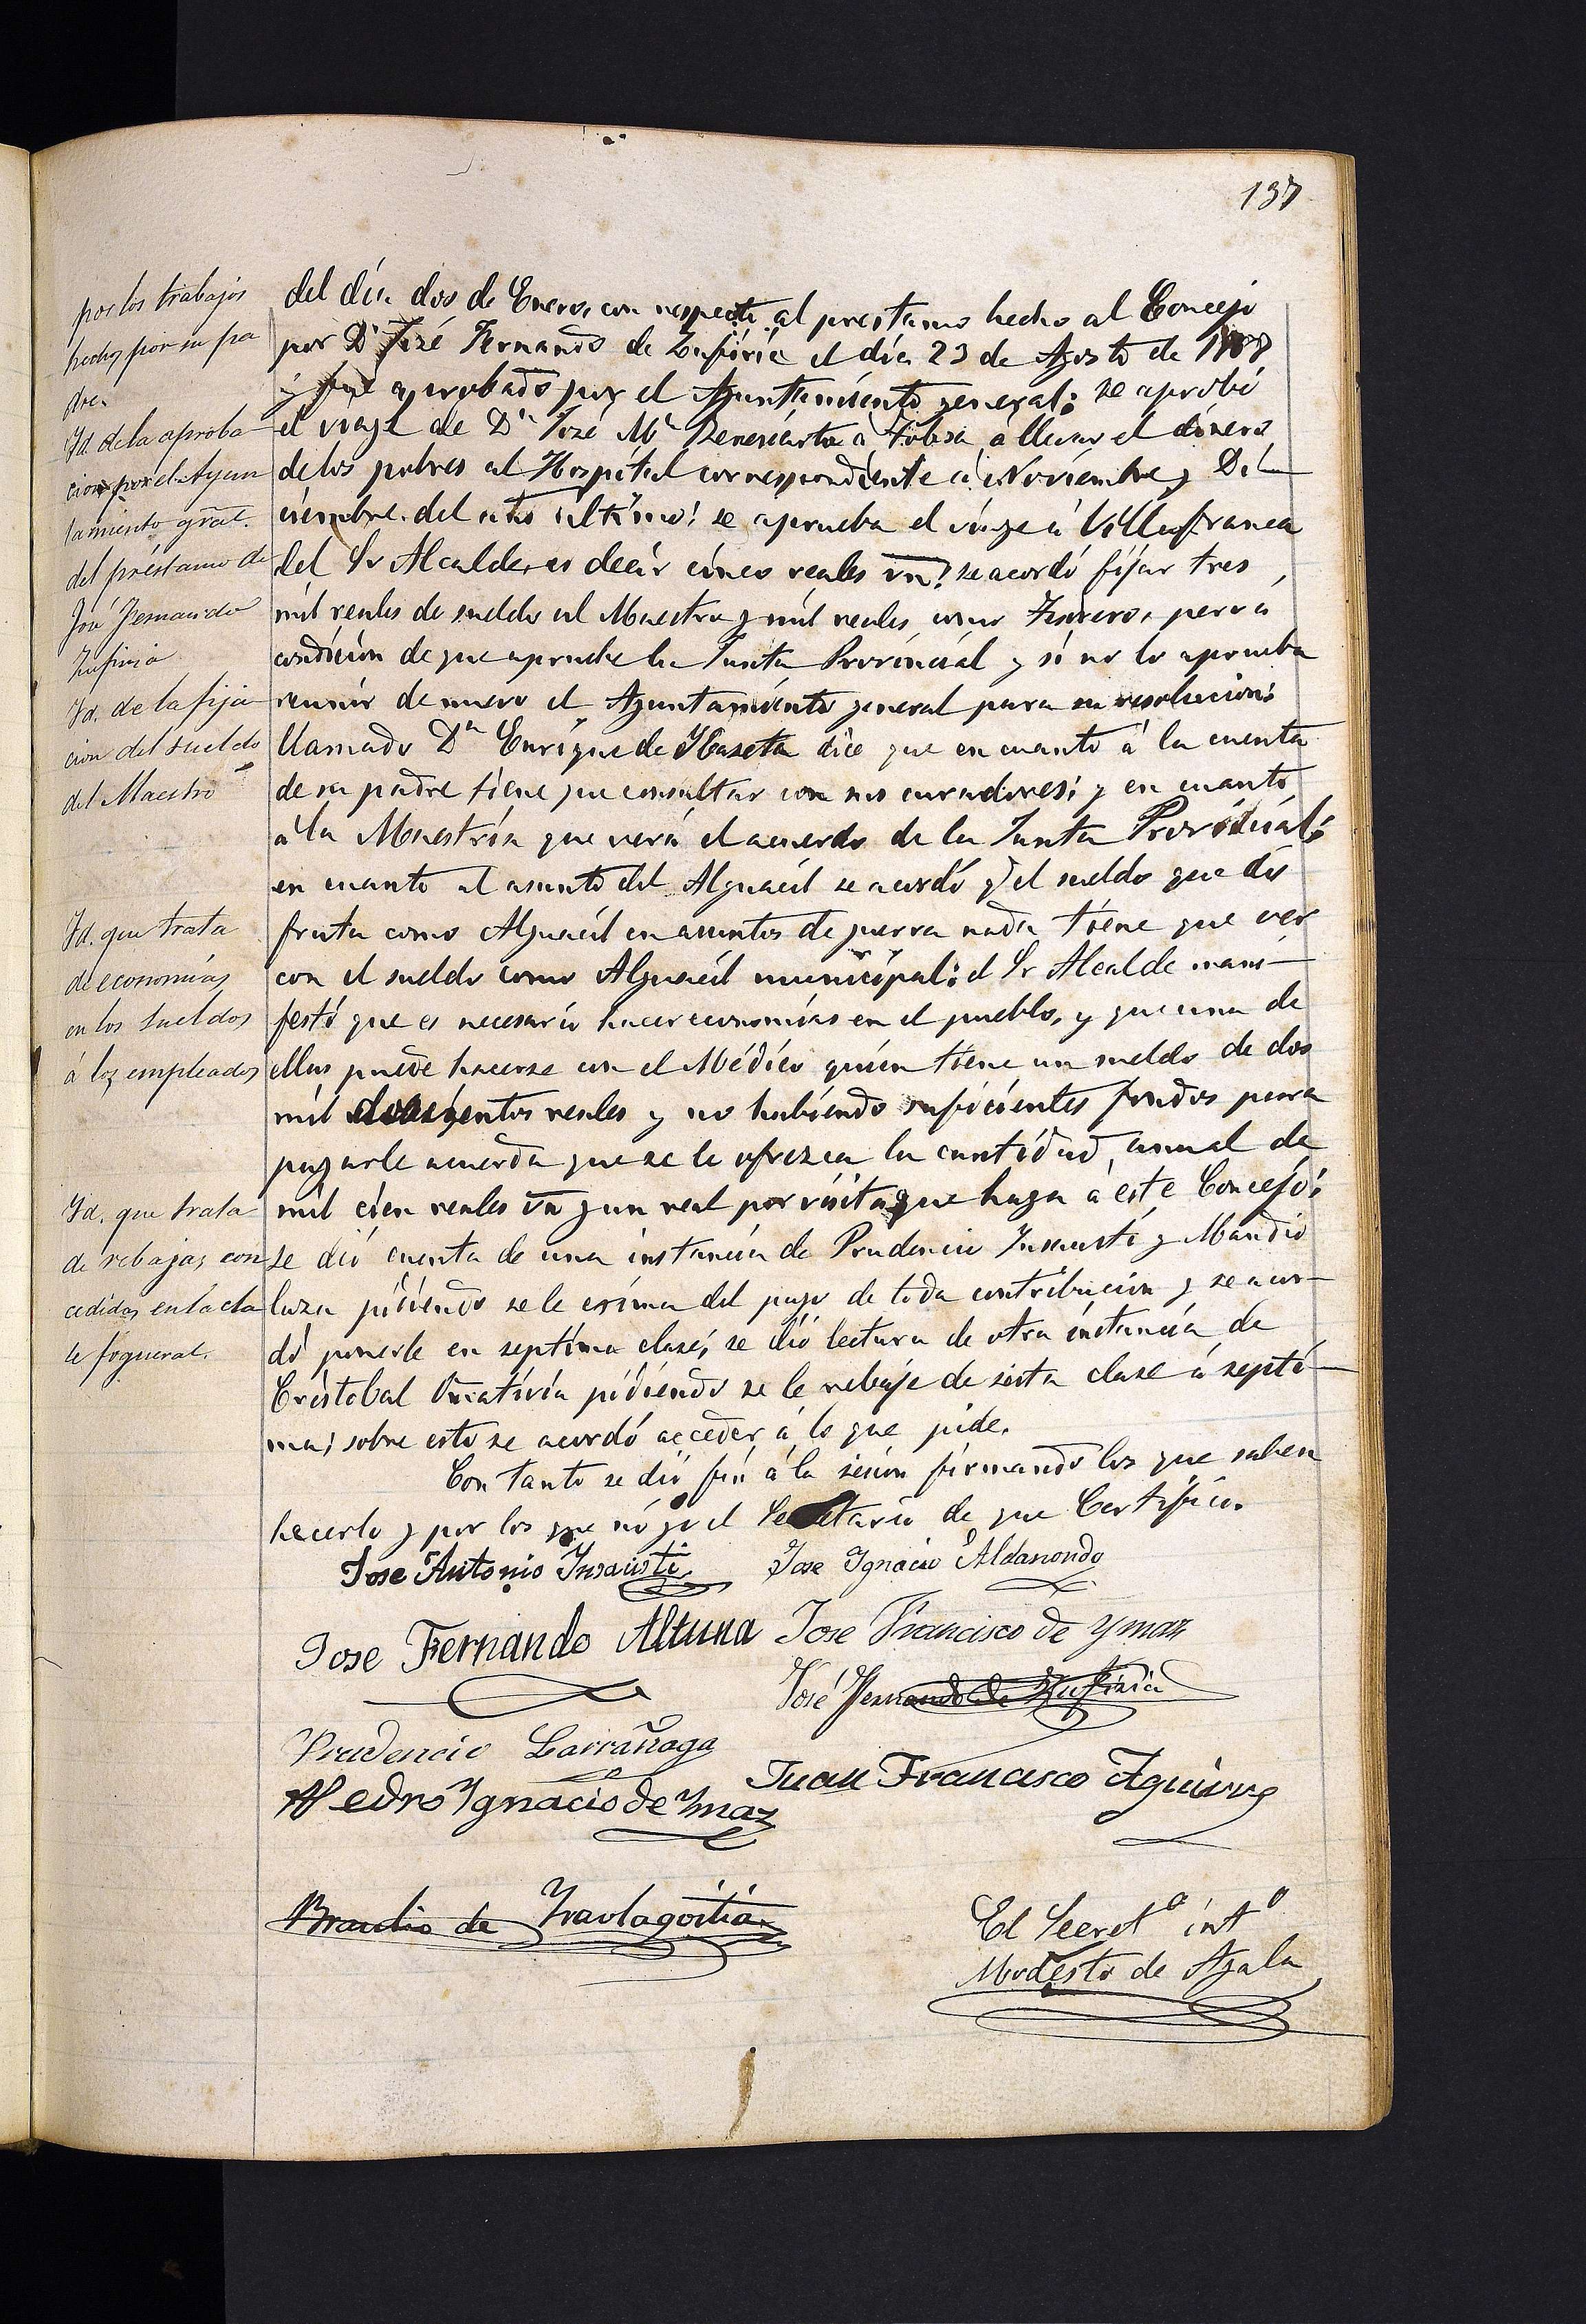 137
por los trabajos
hechos por su pa
dre.
Id. de la aproba
cion por el Ayun
tamiento gral.
del préstamo de
José Fernando
Zufiria
Id. de la fija
cion del sueldo
del Maestro
Id. que trata
de economías
en los sueldos
á los empleados
Id. que trata
de rebajas con
cedidas en la cla
se fogueral.
del día dos de Enero, con respecto al prestamo hecho al Concejo
por Dn José Fernando de Zufiria el día 23 de Agosto de
y fué aprobado por el Ayuntamiento general; se aprobó
el viage de Dn José Ma à Tolosa á llevar el dinero
de los pobres al Hospital correspondiente á Noviembre y Di-
ciembre del año último; se aprueba el viage à Villafranca
del Sr Alcalde, es decir cinco reales vn; se acordó fijar tres
mil reales de sueldo al Maestro y mil reales como, pero á
condición de que apruebe la Junta Provincial y si no lo aprueba
reunir de nuevo el Ayuntamiento general para su resolucion;
llamado Dn Enrique de dice que en cuanto á la cuenta
de su padre tiene que consultar con sus curadores; y en cuanto
á la Maestría que verá el acuerdo de la Junta Provincial;
en cuanto al asunto del Alguacil se acordó q el sueldo que dis
fruta como Alguacil en asuntos de guerra nada tiene que ver
con el sueldo como Alguacil municipal; el Sr Alcalde mani-
festó que es necesario hacer economías en el pueblo, y que una de
ellas puede hacerse con el Médico quien tiene un sueldo de dos
mil doscientos reales y no habiendo suficientes fondos para
pagarle acuerda que se le ofrezca la cantidad anual de
mil cien reales vn y un real por visita que haga á este Concejo;
se dió cuenta de una instancia de Prudencio Insausti y Mandio
laza pidiendo se le exima del pago de toda contribucion y se acor-
dó ponerle en septima clase; se dió lectura de otra instancia de
Cristobal pidiendo se le rebaje de sista clase á septi-
ma; sobre esto se acordó acceder á lo que pide.
Con tanto se dió fin á la sesion firmando los que saben
hacerlo y por los que nó yo el Secretario de que Certifico.
Jose Antonio Insausti Jose Ignacio Aldanondo
Jose Fernando Altuna Jose Francisco de Ymaz
José Fernando de Zufiria
Prudencio Larrañaga
Juan Francisco Aguirre
Pedro Ygnacio de Ymaz
Braulio de Yraolagoitia
El Secreto into
Modesto de Ayala